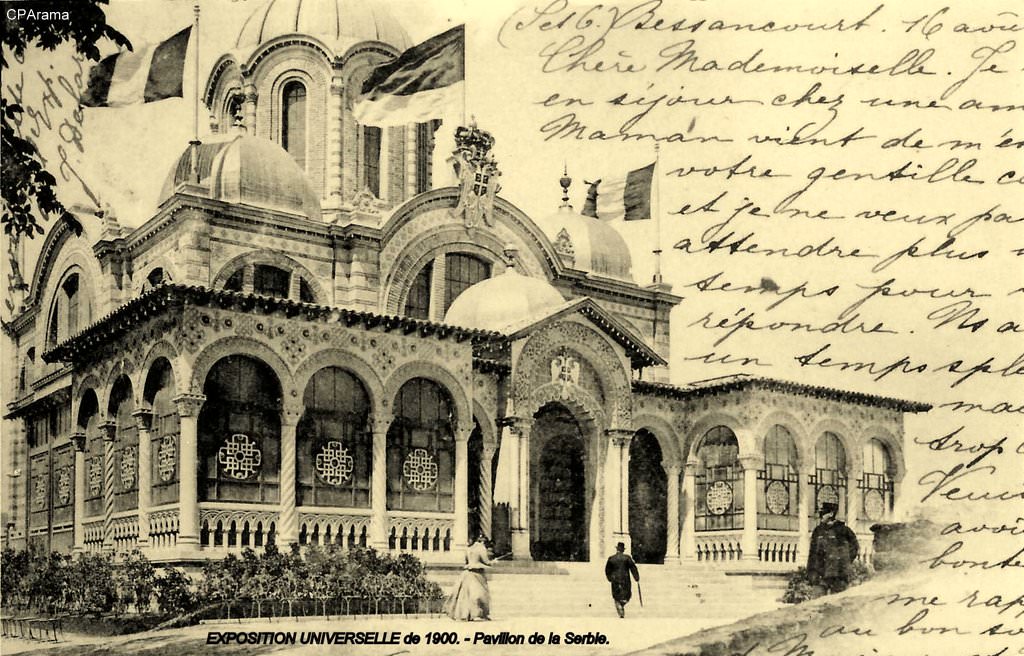 CPArama
(S et O.) Bessancourt. 16 aoû
Chère Mademoiselle. Je
en séjour chez une am
Maman vient de m'en
votre gentille ca
et je ne veux pas
attendre plus
temps pour
répondre. Ns a
un temps sple
mai
trop
Venu
avoi
bonte
me rap
au bon so
EXPOSITION UNIVERSELLE de 1900. - Pavillon de la Serbie.